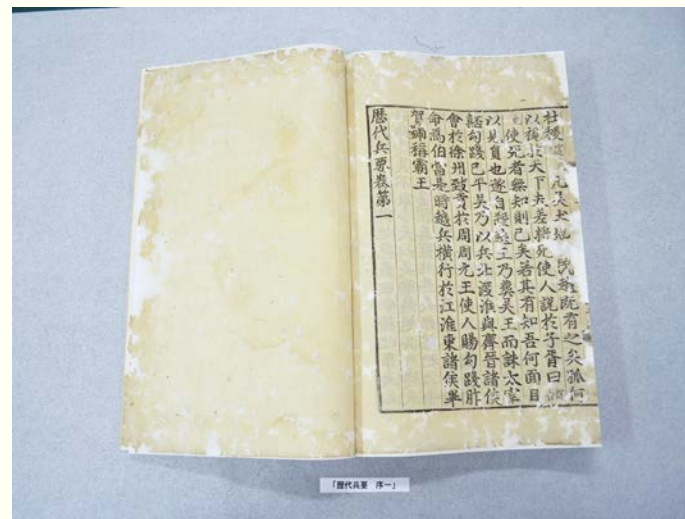 社稷凡吳土地民越既有之矣孤何
以視於天下夫差將死使人說於子胥曰
使死者無知則已矣若其有知吾何面目
以見員也遂自殺越王乃葬吳王而誅太宰
嚭勾踐已平吳乃以兵北渡淮與齊晉諸侯
會於徐州致貢於周周元王使人賜勾踐胙
命爲伯當是時越兵橫行於江淮東諸侯畢
賀號稱霸王
歷代兵要卷第一
「歴代兵要 序一」